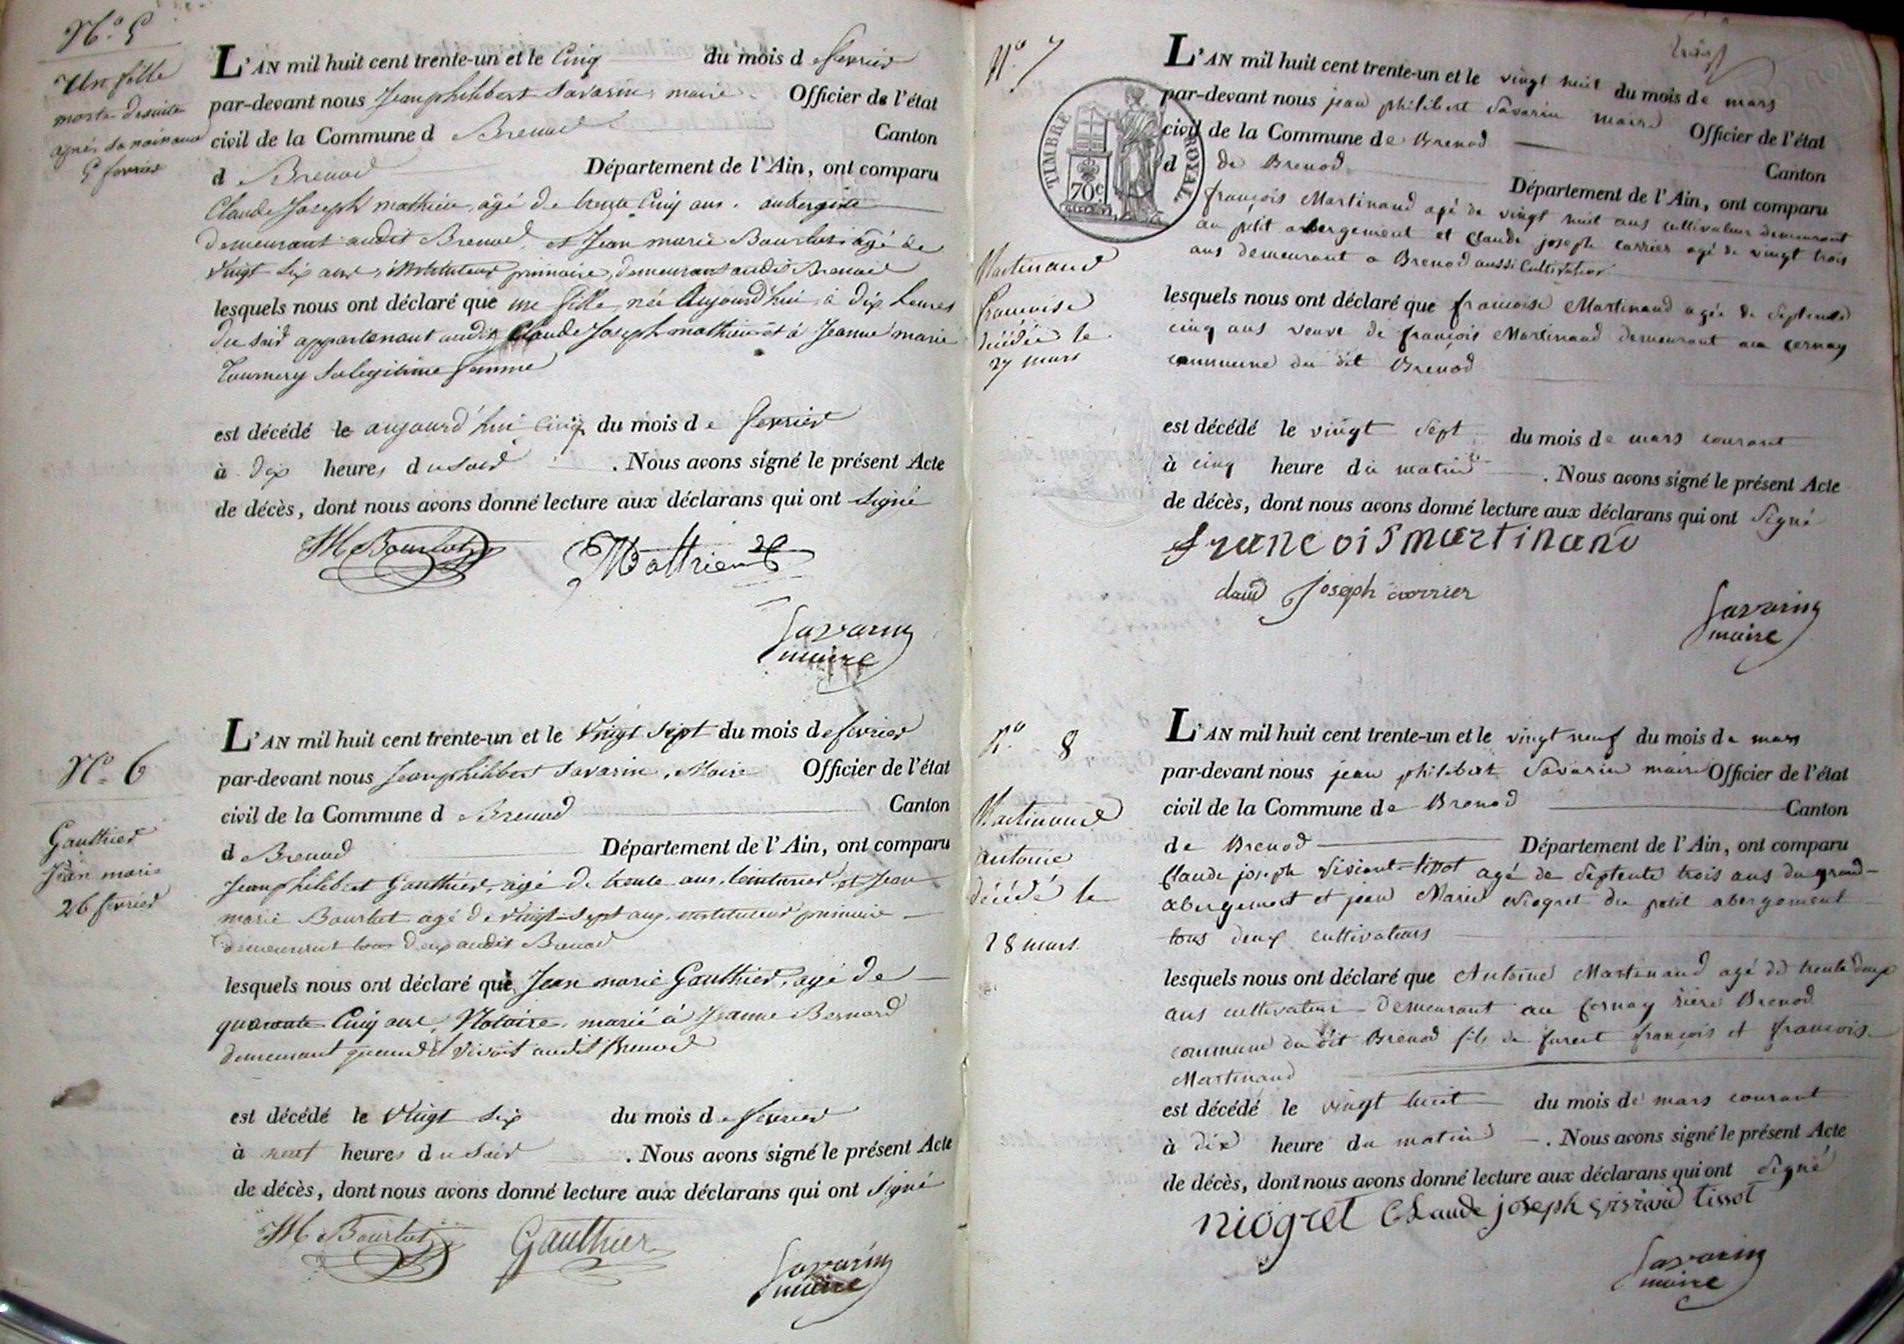 N.º 5
Un fille
morte de suite
après sa naissance
5 fevrier
L'AN mil huit cent trente-un et le Cinq du mois d e fevrier
par-devant nous Jean philibert Savarin, maire. Officier de l'état
civil de la Commune d Brenod Canton
d Brenod Département de l'Ain, ont comparu
Claude Joseph mathieu, agé de trente Cinq ans. aubergiste
demeurant audit Brenod, et Jean marie Bourbot agé de
vingt Six ans, instituteur primaire, demeurant audit Brenod
lesquels nous ont déclaré que une fille née Aujourd'hui à dix heures
du soir appartenant audit Claude Joseph mathieu et à Jeanne marie
Tournery Sa legitime femme
est décédé le aujourd'hui Cinq du mois d e fevrier
à dix heures d u Soir . Nous avons signé le présent Acte
de décès, dont nous avons donné lecture aux déclarans qui ont Signé
JM Bourbot Mathieu
Savarin
maire
N.º 6
Gauthier
Jean marie
26 fevrier
L'AN mil huit cent trente-un et le Vingt Sept du mois d e fevrier
par-devant nous Jean philibert Savarin, Maire Officier de l'état
civil de la Commune d Brenod Canton
d Brenod Département de l'Ain, ont comparu
Jean philibert Gauthier, agé de trente ans, teinturier, et Jean
marie Bourbot agé de vingt-Sept ans, instituteur primaire
demeurant tous deux audit Brenod
lesquels nous ont déclaré que Jean marie Gauthier, agé de
quarante Cinq ans, Notaire, marié à Jeanne Bernard
demeurant quand il vivoit audit Brenod
est décédé le vingt Six du mois d e fevrier
à neuf heures d u Soir . Nous avons signé le présent Acte
de décès, dont nous avons donné lecture aux déclarans qui ont Signé
JM Bourbot Gauthier
Savarin
maire
N.º 7
Martinand
francoise
décédée le
27 mars
TIMBRE ROYAL
70 c
L'AN mil huit cent trente-un et le vingt huit du mois de mars
par-devant nous jean philibert Savarin maire Officier de l'état
civil de la Commune de Brenod Canton
d de Brenod Département de l'Ain, ont comparu
françois Martinand agé de vingt huit ans cultivateur demeurant
au petit abergement et Claude joseph carrier agé de vingt trois
ans demeurant a Brenod aussi Cultivateur
lesquels nous ont déclaré que francoise Martinand agée de Septente
cinq ans veuve de françois Martinand demeurant au cernay
commune du dit Brenod
est décédé le vingt Sept du mois de mars courant
à cinq heure du matin . Nous avons signé le présent Acte
de décès, dont nous avons donné lecture aux déclarans qui ont Signé
francois martinand
Joseph carrier
Savarin
maire
N.º 8
Martinand
antoine
décédé le
28 mars
L'AN mil huit cent trente-un et le vingt neuf du mois de mars
par-devant nous jean philibert Savarin maire Officier de l'état
civil de la Commune de Brenod Canton
de Brenod Département de l'Ain, ont comparu
Claude joseph tissot agé de Septente trois ans du grand-
abergement et jean Marie Niogret du petit abergement
tous deux cultivateurs
lesquels nous ont déclaré que Antoine Martinand agé de trente deux
ans cultivateur demeurant au Cernay rière Brenod
commune du dit Brenod fils de furent françois et francoise
Martinand
est décédé le vingt huit du mois de mars courant
à dix heure du matin . Nous avons signé le présent Acte
de décès, dont nous avons donné lecture aux déclarans qui ont Signé
niogret Claude joseph tissot
Savarin
maire